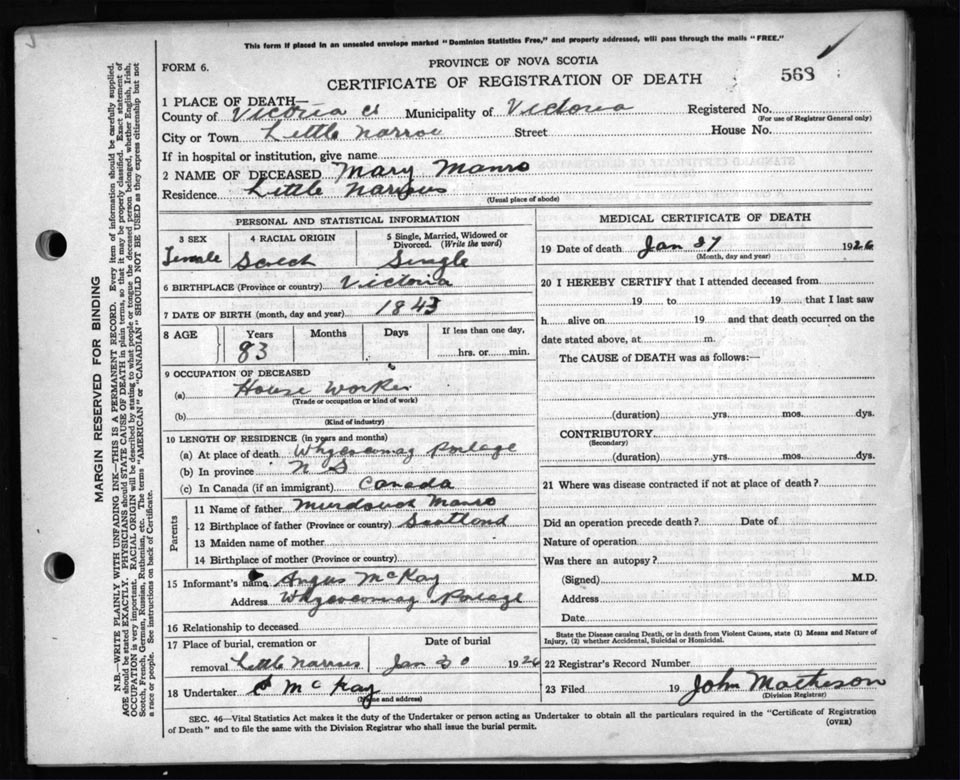 This form if placed in an unsealed envelope marked "Dominion Statistics Free," and properly addressed, will pass through the mails "FREE."
FORM 6.
PROVINCE OF NOVA SCOTIA
CERTIFICATE OF REGISTRATION OF DEATH
563
1 PLACE OF DEATH—
County of Victoria Co Municipality of Victoria Registered No.
(For use of Registrar General only)
City or Town Little Narrow Street House No.
If in hospital or institution, give name
2 NAME OF DECEASED Mary Manro
Residence Little Narrows
(Usual place of abode)
PERSONAL AND STATISTICAL INFORMATION
3 SEX 4 RACIAL ORIGIN 5 Single, Married, Widowed or Divorced. (Write the word)
Female Scotch Single
6 BIRTHPLACE (Province or country) Victoria
7 DATE OF BIRTH (month, day and year) 1843
8 AGE Years Months Days If less than one day,
83 hrs. or min.
9 OCCUPATION OF DECEASED
(a) House Worker
(Trade or occupation or kind of work)
(b)
(Kind of industry)
10 LENGTH OF RESIDENCE (in years and months)
(a) At place of death Whycocomag Portage
(b) In province N S
(c) In Canada (if an immigrant) Canada
Parents
11 Name of father Murdoch Manro
12 Birthplace of father (Province or country) Scotland
13 Maiden name of mother
14 Birthplace of mother (Province or country)
15 Informant's name Angus McKay
Address Whycocomag Portage
16 Relationship to deceased
17 Place of burial, cremation or removal Little Narrows Date of burial Jan 30 1926
18 Undertaker A McKay
(Name and address)
MEDICAL CERTIFICATE OF DEATH
19 Date of death Jan 27 1926
(Month, day and year)
20 I HEREBY CERTIFY that I attended deceased from
19 to 19 that I last saw
h alive on 19 and that death occurred on the
date stated above, at m.
The CAUSE of DEATH was as follows:—
(duration) yrs. mos. dys.
CONTRIBUTORY
(Secondary)
(duration) yrs. mos. dys.
21 Where was disease contracted if not at place of death?
Did an operation precede death? Date of
Nature of operation
Was there an autopsy?
(Signed) M.D.
Address
Date
State the Disease causing Death, or in death from Violent Causes, state (1) Means and Nature of Injury, (2) whether Accidental, Suicidal or Homicidal.
22 Registrar's Record Number
23 Filed 19 John Matheson
(Division Registrar)
SEC. 46—Vital Statistics Act makes it the duty of the Undertaker or person acting as Undertaker to obtain all the particulars required in the "Certificate of Registration
of Death" and to file the same with the Division Registrar who shall issue the burial permit.
(OVER)
MARGIN RESERVED FOR BINDING
N.B.—WRITE PLAINLY WITH UNFADING INK—THIS IS A PERMANENT RECORD. Every item of information should be carefully supplied.
AGE should be stated EXACTLY. PHYSICIANS should STATE CAUSE OF DEATH in plain terms, so that it may be properly classified. Exact statement of
OCCUPATION is very important. RACIAL ORIGIN will be described by stating to what people or tongue the deceased person belonged, whether English, Irish,
Scotch, French, German, Russian, Ruthenian, etc. The terms "AMERICAN" or "CANADIAN" SHOULD NOT BE USED as they express citizenship but not
a race or people. See instructions on back of Certificate.